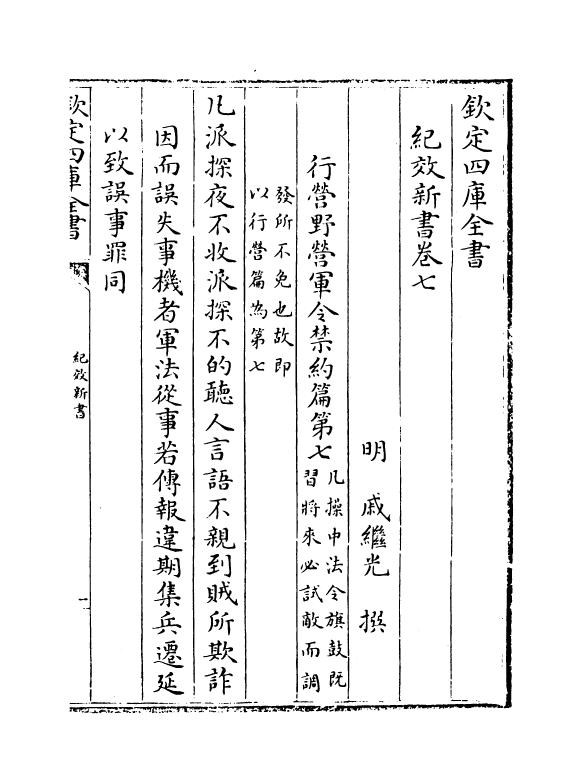 欽定四庫全書
紀效新書卷七
明　戚繼光　撰
行營野營軍令禁約篇第七凡操中法令旗鼓既
習將來必試敵而調
發所不免也故即
以行營篇為第七
凡派探夜不收派探不的聽人言語不親到賊所欺詐
因而誤失事機者軍法從事若傳報違期集兵遷延
以致誤事罪同
欽定四庫全書
紀效新書
一